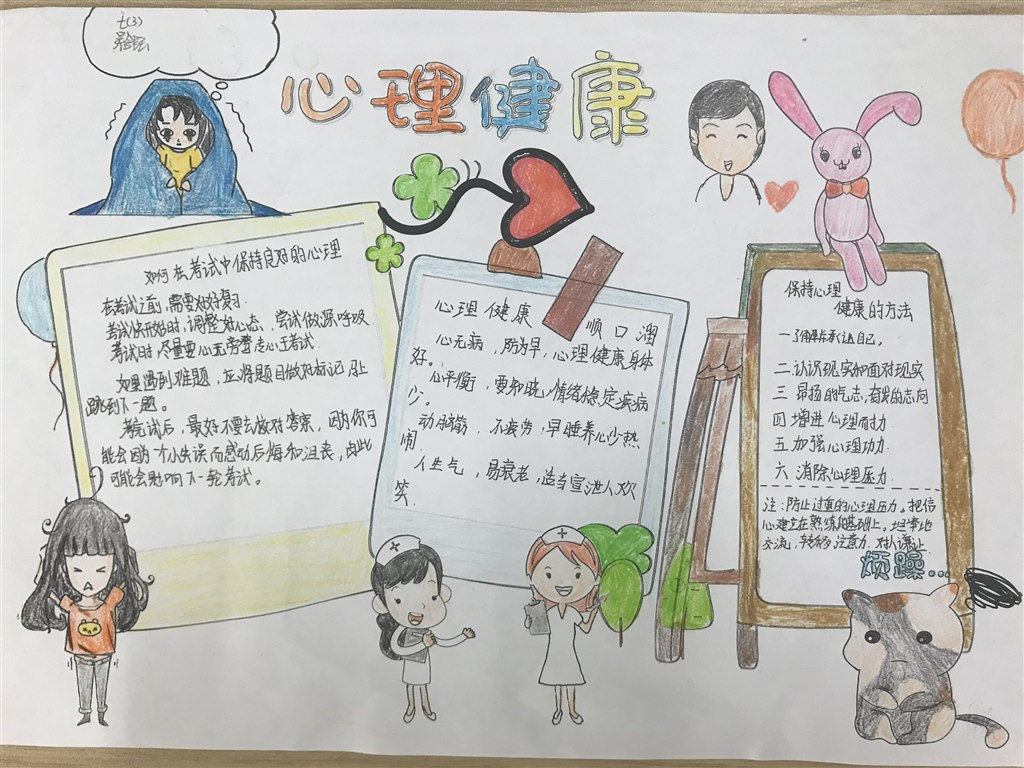 七(3)
心理健康
如何在考试中保持良好的心理
在考试之前,需要好好复习.
考试快开始时,调整好心态,尝试做深呼吸
考试时,尽量要心无旁骛专心于考试.
如果遇到难题,应将题目做好标记,
跳到下一题。
考完试后,最好不要去核对答案,因为你可
能会因为一个小失误而感动后悔和沮丧,由此
可能会影响下一轮考试。
心理健康 顺口溜
心无病,防为早,心理健康身体
好。
心平衡,要知晓,情绪稳定疾病
少。
动脑筋,不疲劳,早睡养心少热
闹.
人生气,易衰老,适当宣泄人欢
笑.
保持心理
健康的方法
一了解并承认自己。
二认识现实和面对现实
三 昂扬的气志,奋发的志向
四增进心理耐力
五加强心理功力
六 消除心理压力
注:防止过重的心理压力。把信
心建立在熟练的基础上。坦率地
交流,转移注意力.对人谦让.
烦躁...